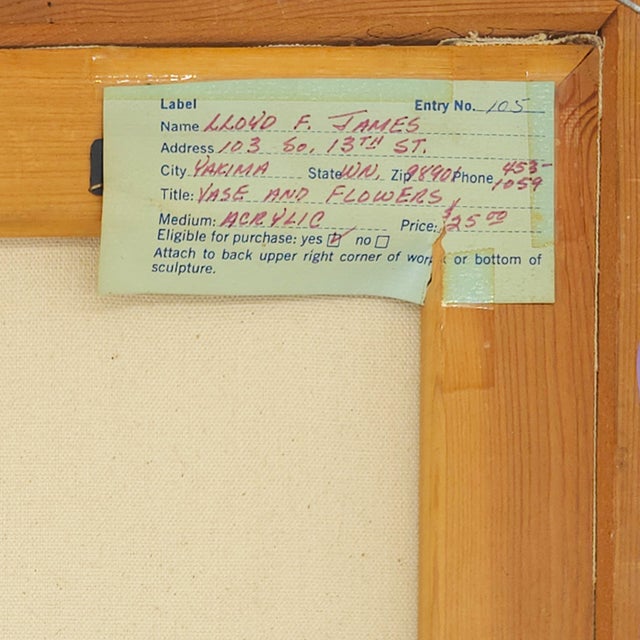 Label Entry No. 105
Name LLOYD F. JAMES
Address 103 So. 13TH ST.
City YAKIMA State WN. Zip 98901 Phone 453-1059
Title: VASE AND FLOWERS
Medium: ACRYLIC Price: $25 00
Eligible for purchase: yes ☑ no ☐
Attach to back upper right corner of work or bottom of
sculpture.